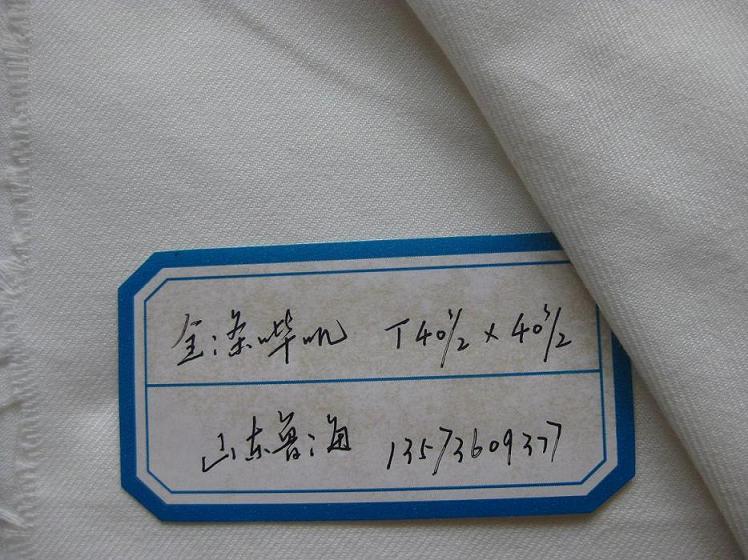 全涤哔叽 T40s/2×40s/2
山东鲁海 13573609377